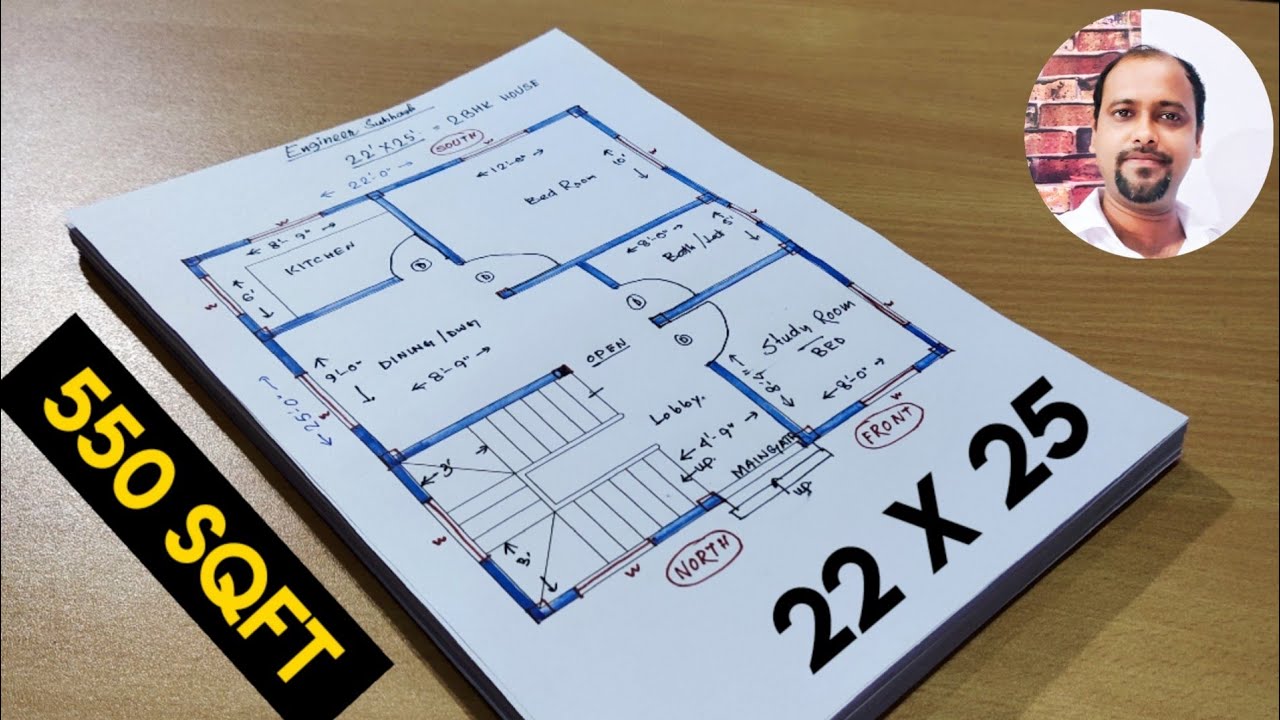 Engineer Subhash
22'X25' = 2BHK HOUSE
22'-0"
SOUTH
W
W
8'-9"
KITCHEN
6'
W
D
12'-0"
Bed Room
10'
W
D
8'-0"
Bath/Lat
5'
W
D
D
DINING/DWG
9'-0"
8'-9"
25'-0"
OPEN
Study Room
BED
8'-0"
W
W
FRONT
Lobby.
4'-9"
up.
MAINGATE
up
3'
3'
W
NORTH
550 SQFT
22 X 25